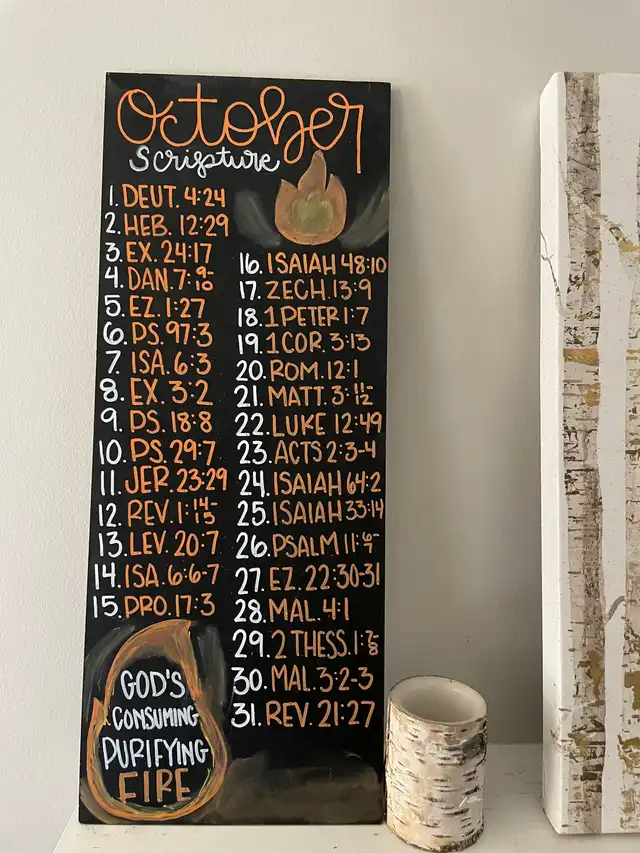 October
Scripture
1. DEUT. 4:24
2. HEB. 12:29
3. EX. 24:17
4. DAN. 7:9-10
5. EZ. 1:27
6. PS. 97:3
7. ISA. 6:3
8. EX. 3:2
9. PS. 18:8
10. PS. 29:7
11. JER. 23:29
12. REV. 1:14-15
13. LEV. 20:7
14. ISA. 6:6-7
15. PRO. 17:3
GOD'S
CONSUMING
PURIFYING
FIRE
16. ISAIAH 48:10
17. ZECH. 13:9
18. 1 PETER 1:7
19. 1 COR. 3:13
20. ROM. 12:1
21. MATT. 3:11-12
22. LUKE 12:49
23. ACTS 2:3-4
24. ISAIAH 64:2
25. ISAIAH 33:14
26. PSALM 11:6-7
27. EZ. 22:30-31
28. MAL. 4:1
29. 2 THESS. 1:7-8
30. MAL. 3:2-3
31. REV. 21:27